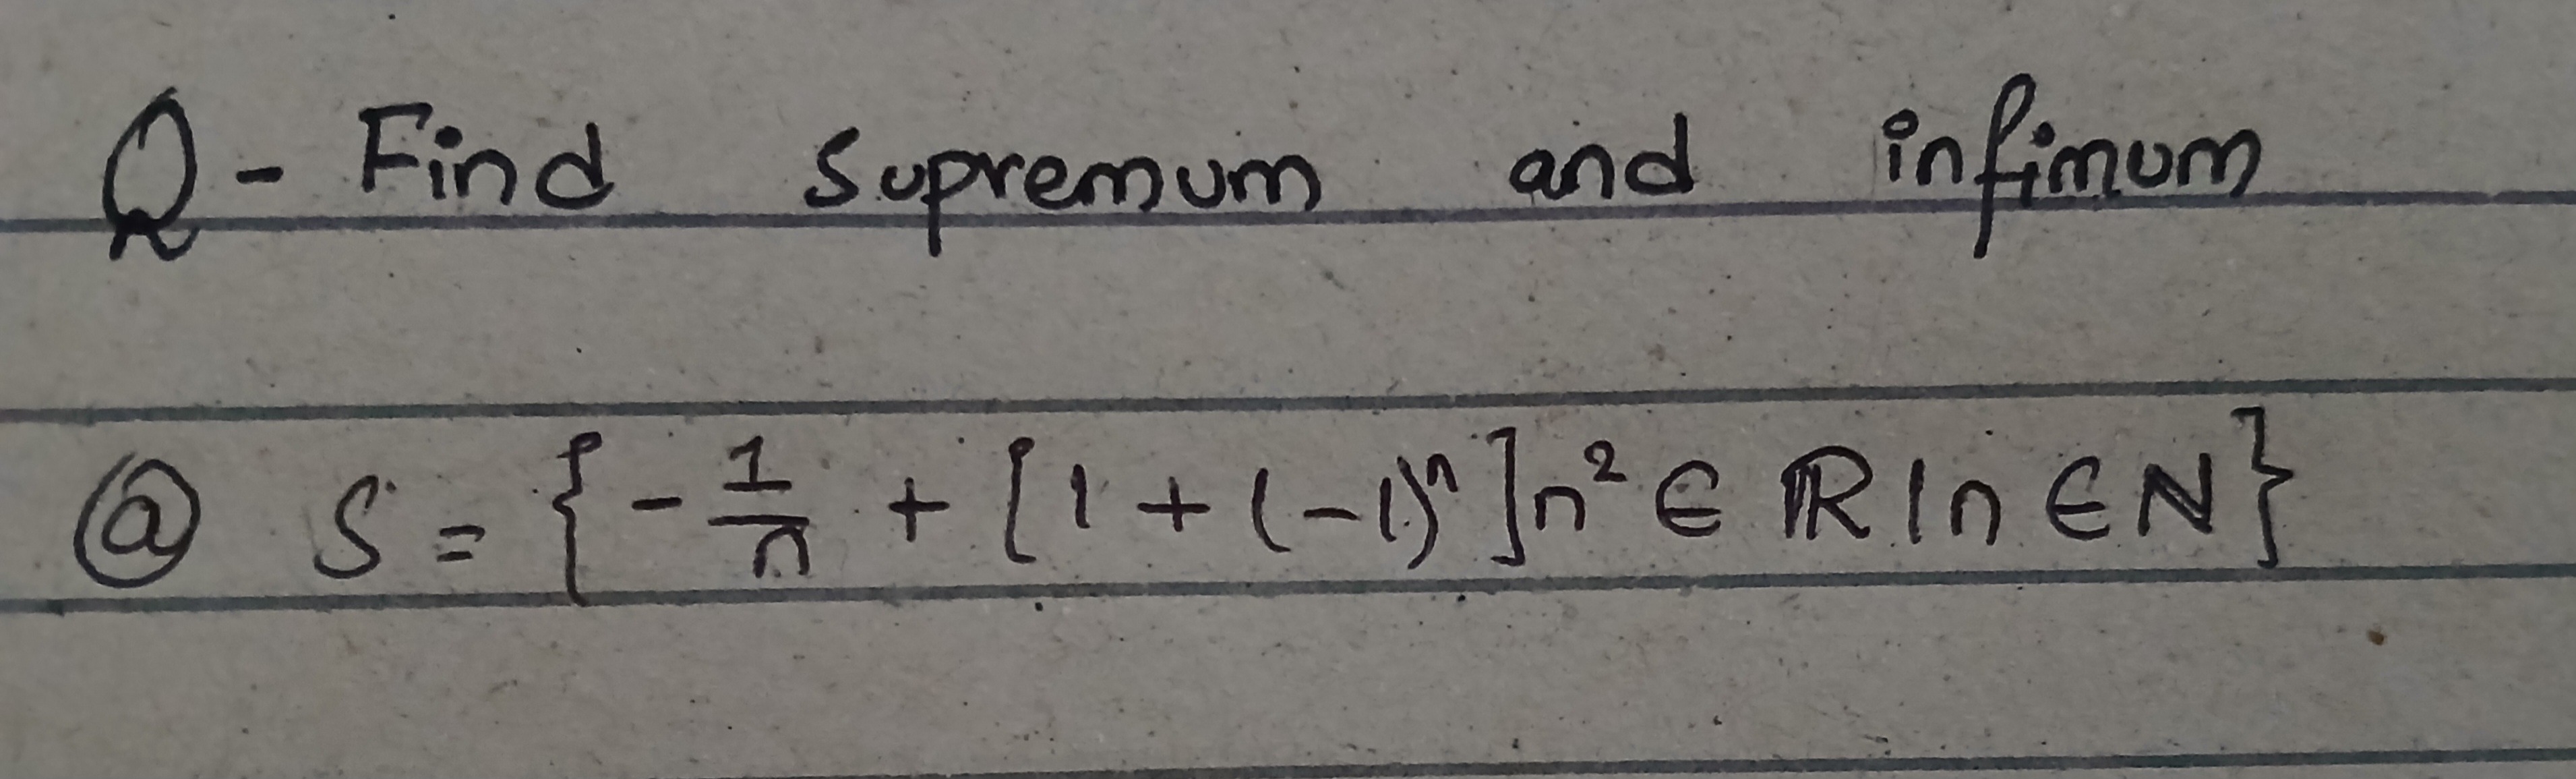 Q - Find supremum and infimum
ⓐ S = {-1/n + [1 + (-1)ⁿ]n² ∈ ℝ | n ∈ N}